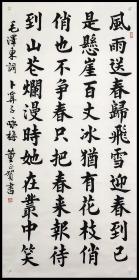 風雨送春歸飛雪迎春到已
是懸崖百丈冰猶有花枝俏
俏也不爭春只把春來報待
到山花爛漫時她在叢中笑
毛澤東詞 卜算子 詠梅 董正賀書